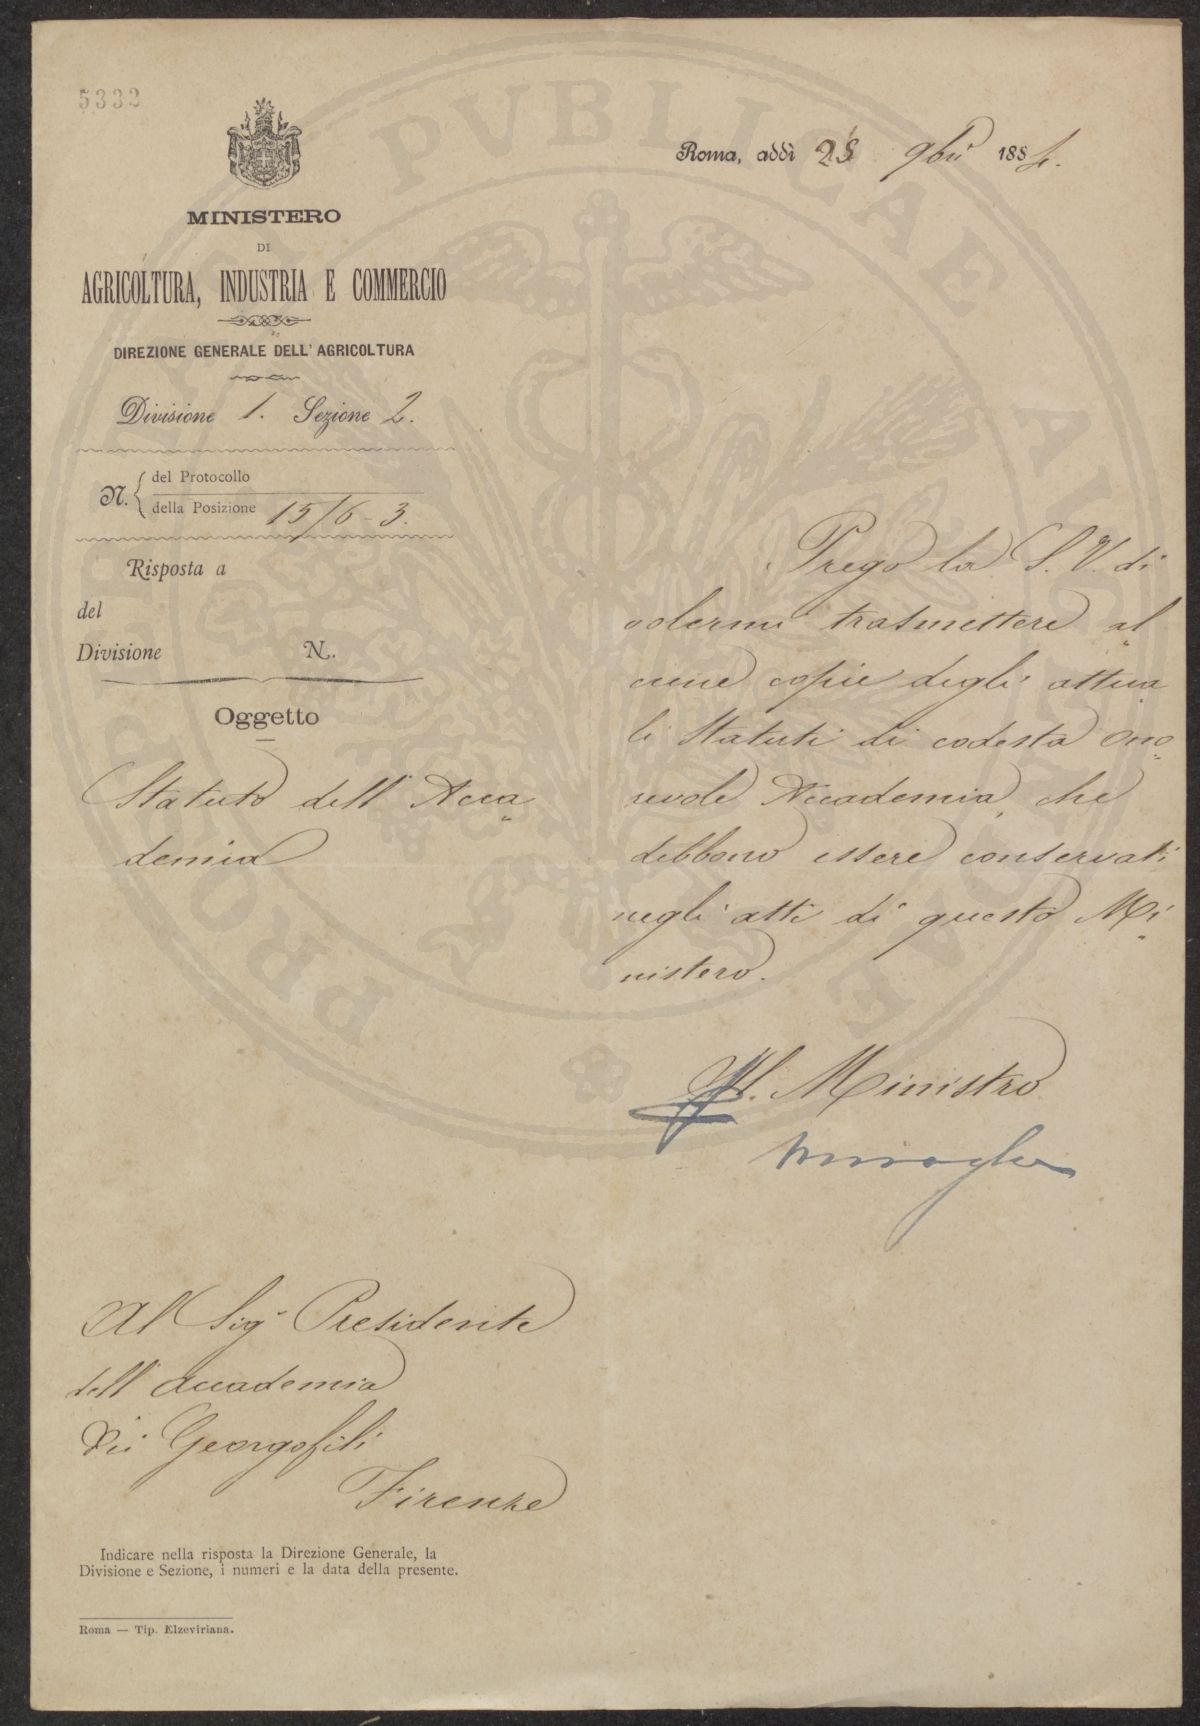 5332
Roma, addì 25 9bre 1884.
MINISTERO
DI
AGRICOLTURA, INDUSTRIA E COMMERCIO
DIREZIONE GENERALE DELL' AGRICOLTURA
Divisione 1. Sezione 2.
N. del Protocollo
della Posizione 15/6-3.
Risposta a
del
Divisione N.
Oggetto
Statuto dell' Acca
demia
Prego la S. V. di
volermi trasmettere al
cune copie degli attua
li Statuti di codesta Ono
revole Accademia, che
debbono essere conservati
negli atti di questo Mi
nistero.
Il Ministro
Al Sigr Presidente
dell' Accademia
dei Georgofili
Firenze
Indicare nella risposta la Direzione Generale, la
Divisione e Sezione, i numeri e la data della presente.
Roma — Tip. Elzeviriana.
PROBATI PVBLICAE AVGENDAE